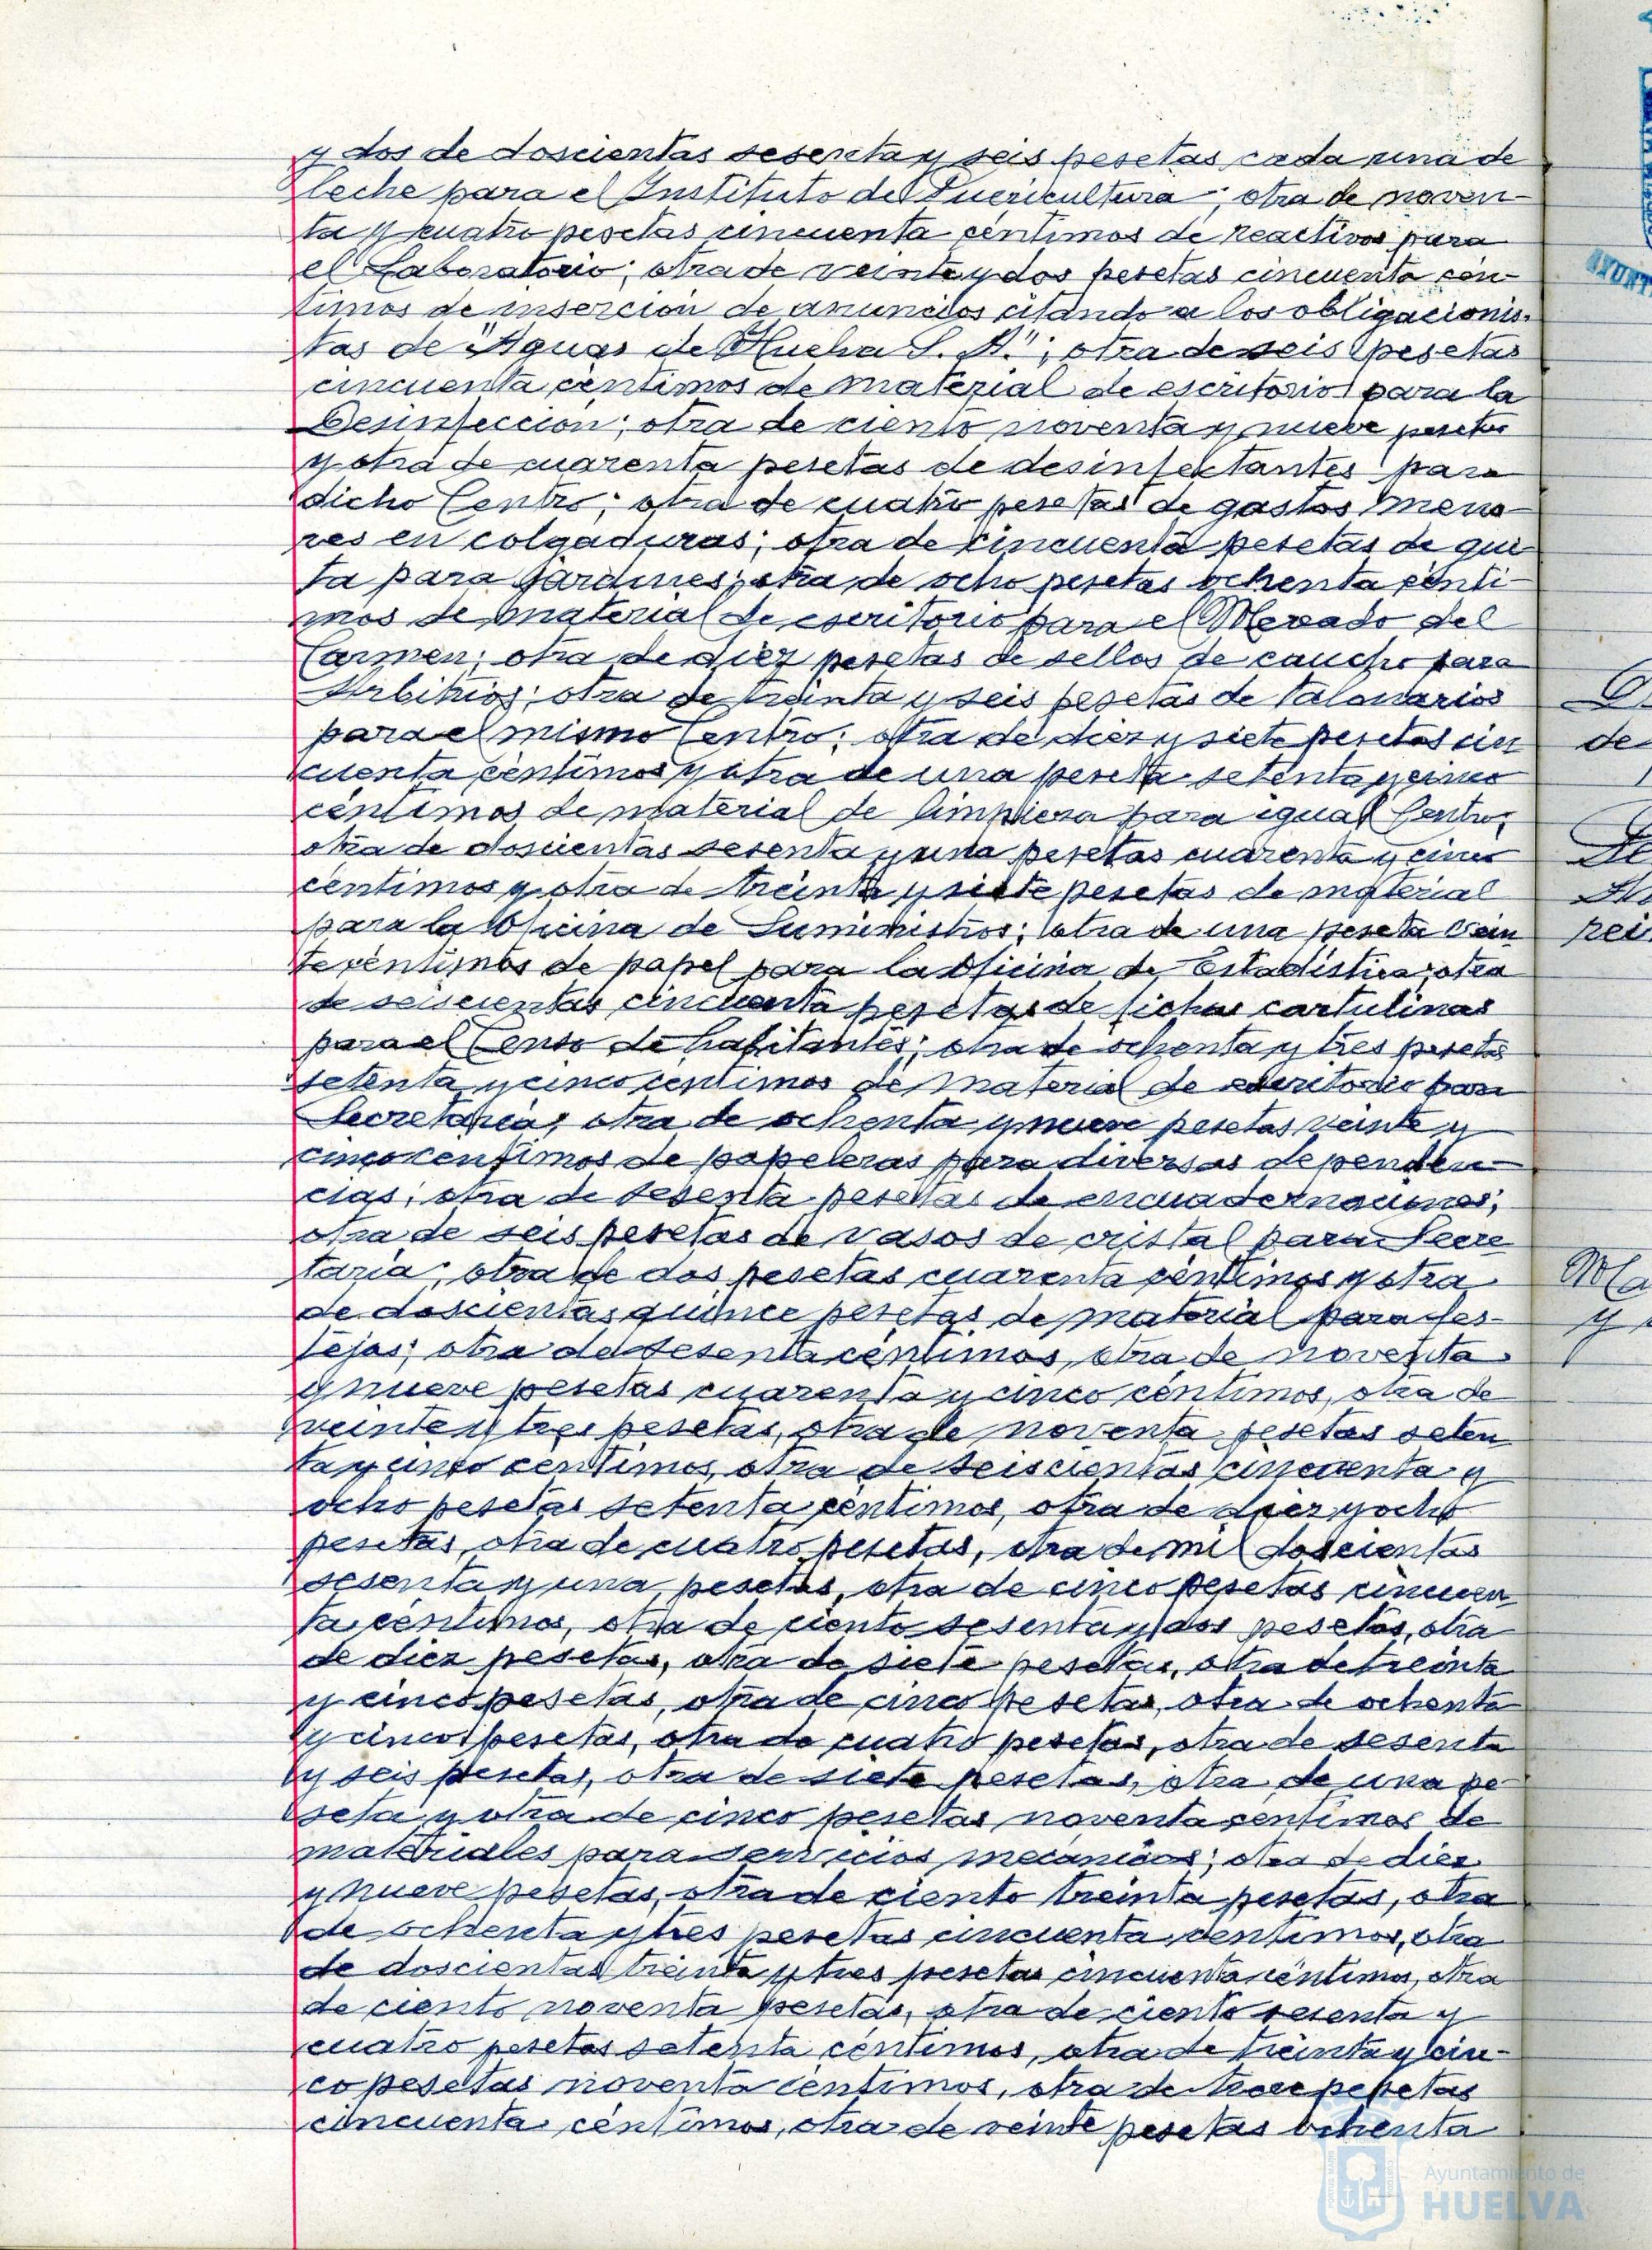 y dos de doscientas sesenta y seis pesetas cada una de
leche para el Instituto de Puericultura; otra de noven-
ta y cuatro pesetas cincuenta céntimos de reactivos para
el Laboratorio; otra de veinte y dos pesetas cincuenta cén-
timos de inserción de anuncios citando a los obligacionis-
tas de "Aguas de Huelva S. A."; otra de seis pesetas
cincuenta céntimos de material de escritorio para la
Desinfección; otra de ciento noventa y nueve pesetas
y otra de cuarenta pesetas de desinfectantes para
dicho Centro; otra de cuatro pesetas de gastos meno-
res en colgaduras; otra de cincuenta pesetas de
ta para jardines; otra de ocho pesetas ochenta cénti-
mos de material de escritorio para el Mercado del
Carmen; otra de diez pesetas de sellos de caucho para
Arbitrios; otra de treinta y seis pesetas de talonarios
para el mismo Centro; otra de diez y siete pesetas cin
cuenta céntimos y otra de una peseta setenta y cinco
céntimos de material de limpieza para igual Centro;
otra de doscientas sesenta y una pesetas cuarenta y cinco
céntimos y otra de treinta y siete pesetas de material
para la Oficina de Suministros; otra de una peseta vein
te céntimos de papel para la Oficina de Estadística; otra
de seiscientas cincuenta pesetas de fichas cartulinas
para el Censo de habitantes; otra de ochenta y tres pesetas
setenta y cinco céntimos de material de escritorio para
Secretaría; otra de ochenta y nueve pesetas veinte y
cinco centimos de papeleras para diversas dependen-
cias; otra de sesenta pesetas de encuadernaciones;
otra de seis pesetas de vasos de cristal para Secre
taría; otra de dos pesetas cuarenta céntimos y otra
de doscientas quince pesetas de material para fes-
tejos; otra de sesenta céntimos, otra de noventa
y nueve pesetas cuarenta y cinco céntimos, otra de
veinte y tres pesetas, otra de noventa pesetas seten
ta y cinco centimos, otra de seiscientas cincuenta y
ocho pesetas setenta céntimos, otra de diez y ocho
pesetas, otra de cuatro pesetas, otra de mil doscientas
sesenta y una pesetas, otra de cinco pesetas cincuen
ta céntimos, otra de ciento sesenta y dos pesetas, otra
de diez pesetas, otra de siete pesetas, otra de treinta
y cinco pesetas, otra de cinco pesetas, otra de ochenta
y cinco pesetas, otra de cuatro pesetas, otra de sesenta
y seis pesetas, otra de siete pesetas, otra de una pe-
seta y otra de cinco pesetas noventa centimos de
materiales para servicios mecánicos; otra de diez
y nueve pesetas, otra de ciento treinta pesetas, otra
de ochenta y tres pesetas cincuenta centimos, otra
de doscientas treinta y tres pesetas cincuenta céntimos, otra
de ciento noventa pesetas, otra de ciento sesenta y
cuatro pesetas setenta céntimos, otra de treinta y cin-
co pesetas noventa centimos, otra de trece pesetas
cincuenta céntimos, otra de veinte pesetas ochenta
Ayuntamiento de
HUELVA